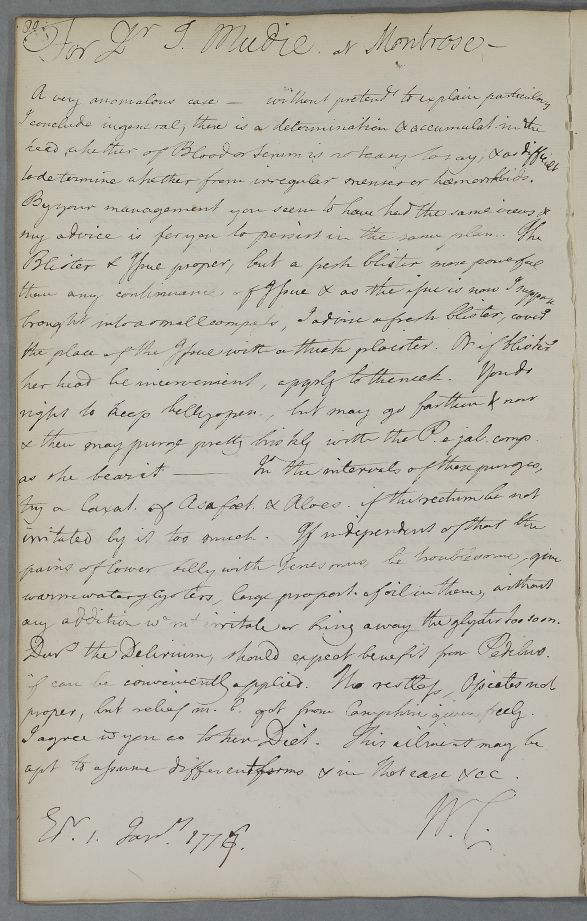 For Dr. J. Mudie. at Montrose —
A very anomalous case — without pretendg. to explain particularly
I conclude in general, there is a determination & accumulat. in the
head, whether of Blood or Serum is not easy to say, & as difficult
to determine whether from irregular menses or hæmorrhoids.
By your management you seem to have had the same views &
my advice is for you to persist in the same plan. The
Blister & Issue proper, but a fresh blister more powerful
than any continuance of Issue & as the issue is now I suppose
brought into a small compass, I advise a fresh blister, coverg
the place of the Issue with a thick plaister. Or if blisterg
her head be inconvenient, apply to the neck. You do
right to keep belly open, but may go farther & now
& then may purge pretty briskly with the P. e jal. comp.
as she bears it — In the intervals of these purges,
try a Laxat. of Asafoet. & Aloes. if the rectum be not
irritated by it too much. If independent of that the
pains of lower belly with Tenesmus, be troublesome, give
warm water glysters, large proport. of oil in them, without
any addition wc. mt. irritate or bring away the glyster too soon.
Durg. the Delirium, should expect benefit from Pediluv.
if can be conveniently applied. Tho restless, Opiates not
proper, but relief m. b. got from Camphire given freely.
I agree wt. you as to her Diet. This ailment may be
apt to assume different forms & in that case &cc.
W. C.
Edr. 1. Janry. 177